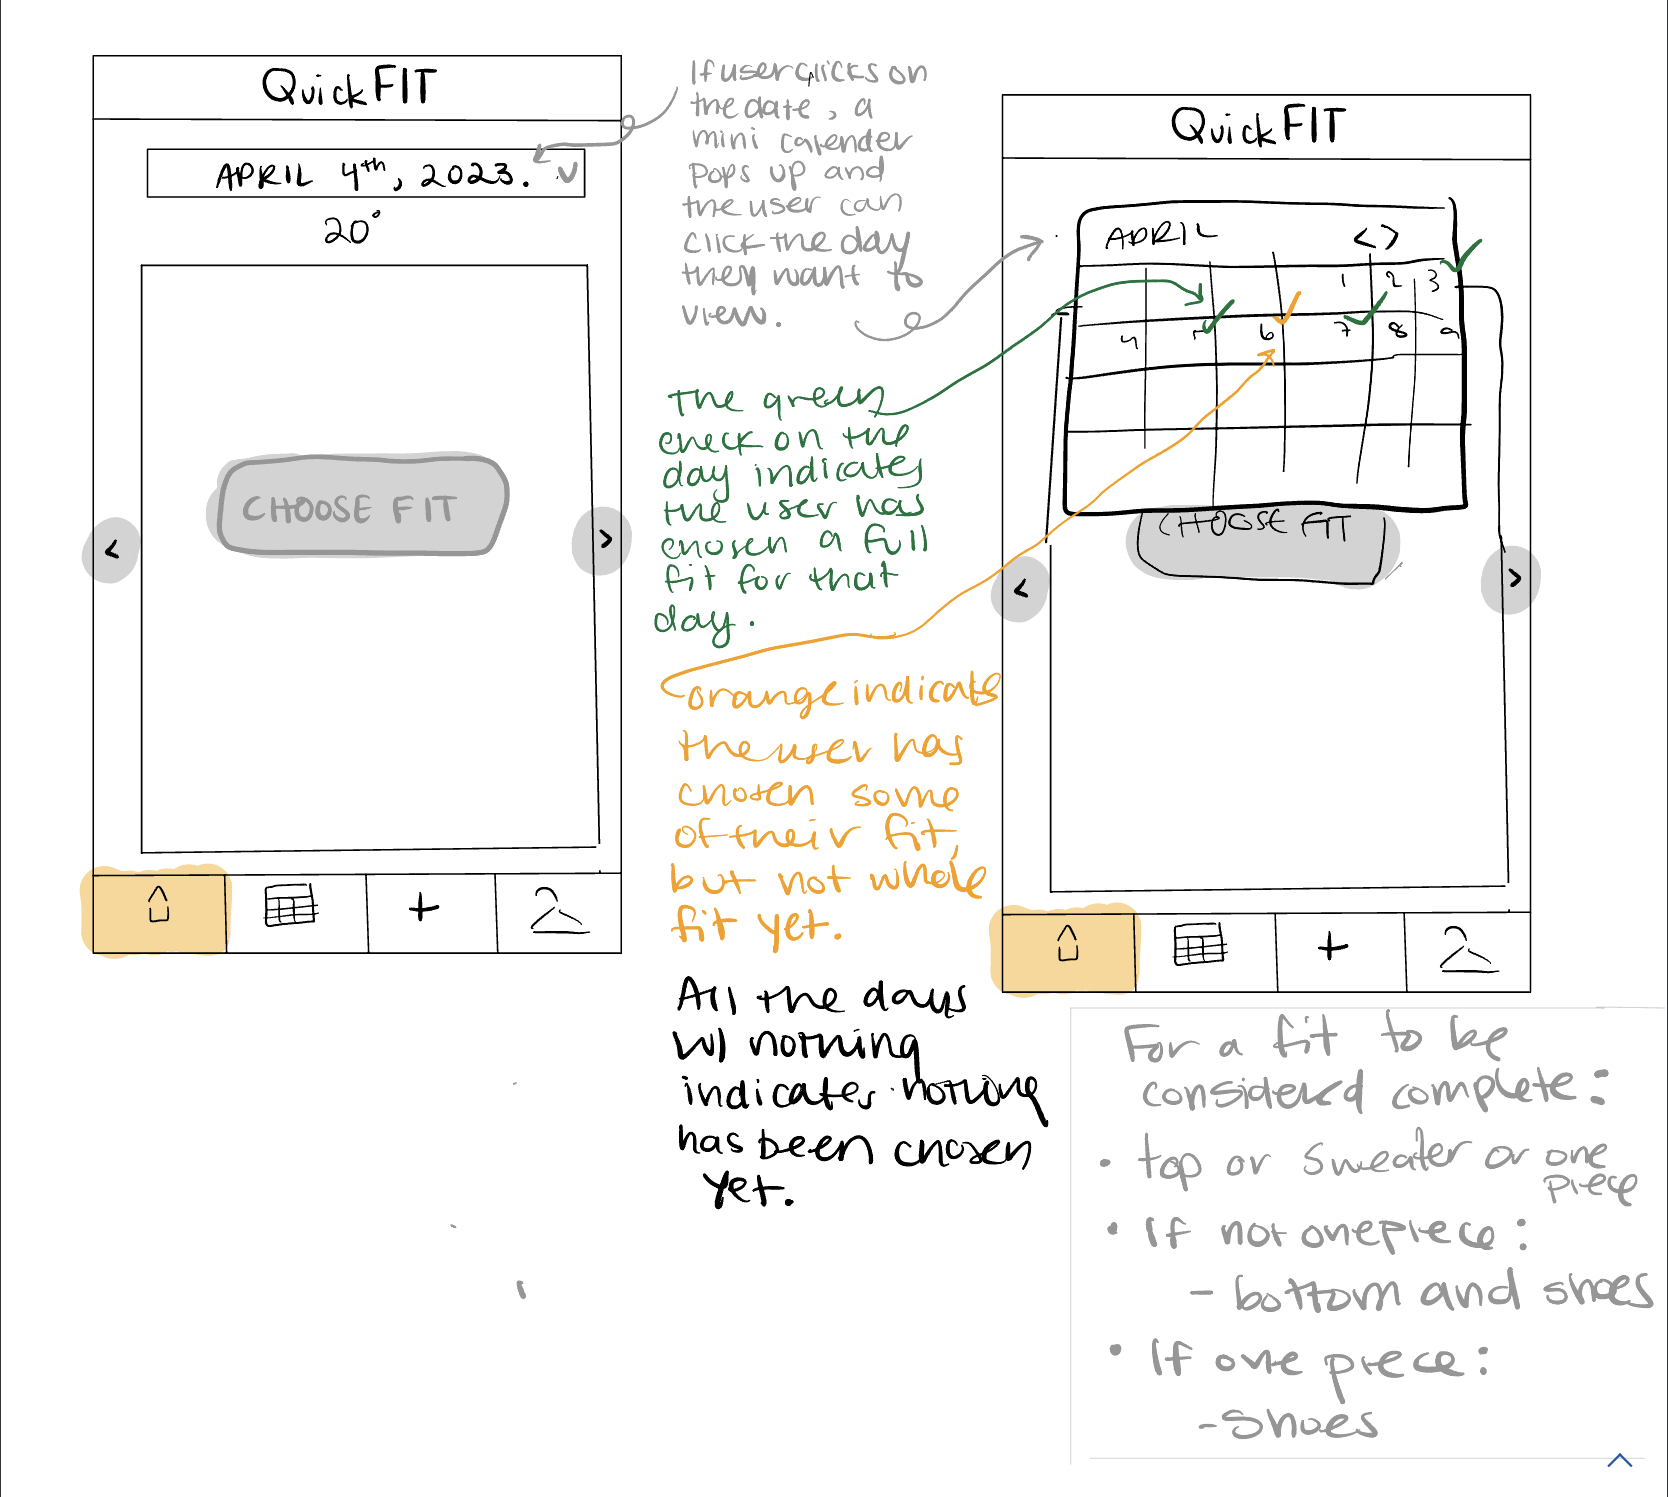 QuickFIT
APRIL 4th, 2023.
20°
CHOOSE FIT
<
>
+
If user clicks on
the date, a
mini calender
pops up and
the user can
click the day
they want to
view.
The green
check on the
day indicates
the user has
chosen a full
fit for that
day.
orange indicats
the user has
chosen some
of their fit,
but not whole
fit yet.
All the days
w/ nothing
indicates nothing
has been chosen
yet.
QuickFIT
APRIL < >
1 2 3
4 5 6 7 8 9
CHOOSE FIT
<
>
+
For a fit to be
considered complete:
• top or sweater or one
piece
• If not onepiece:
- bottom and shoes
• If one piece:
- Shoes